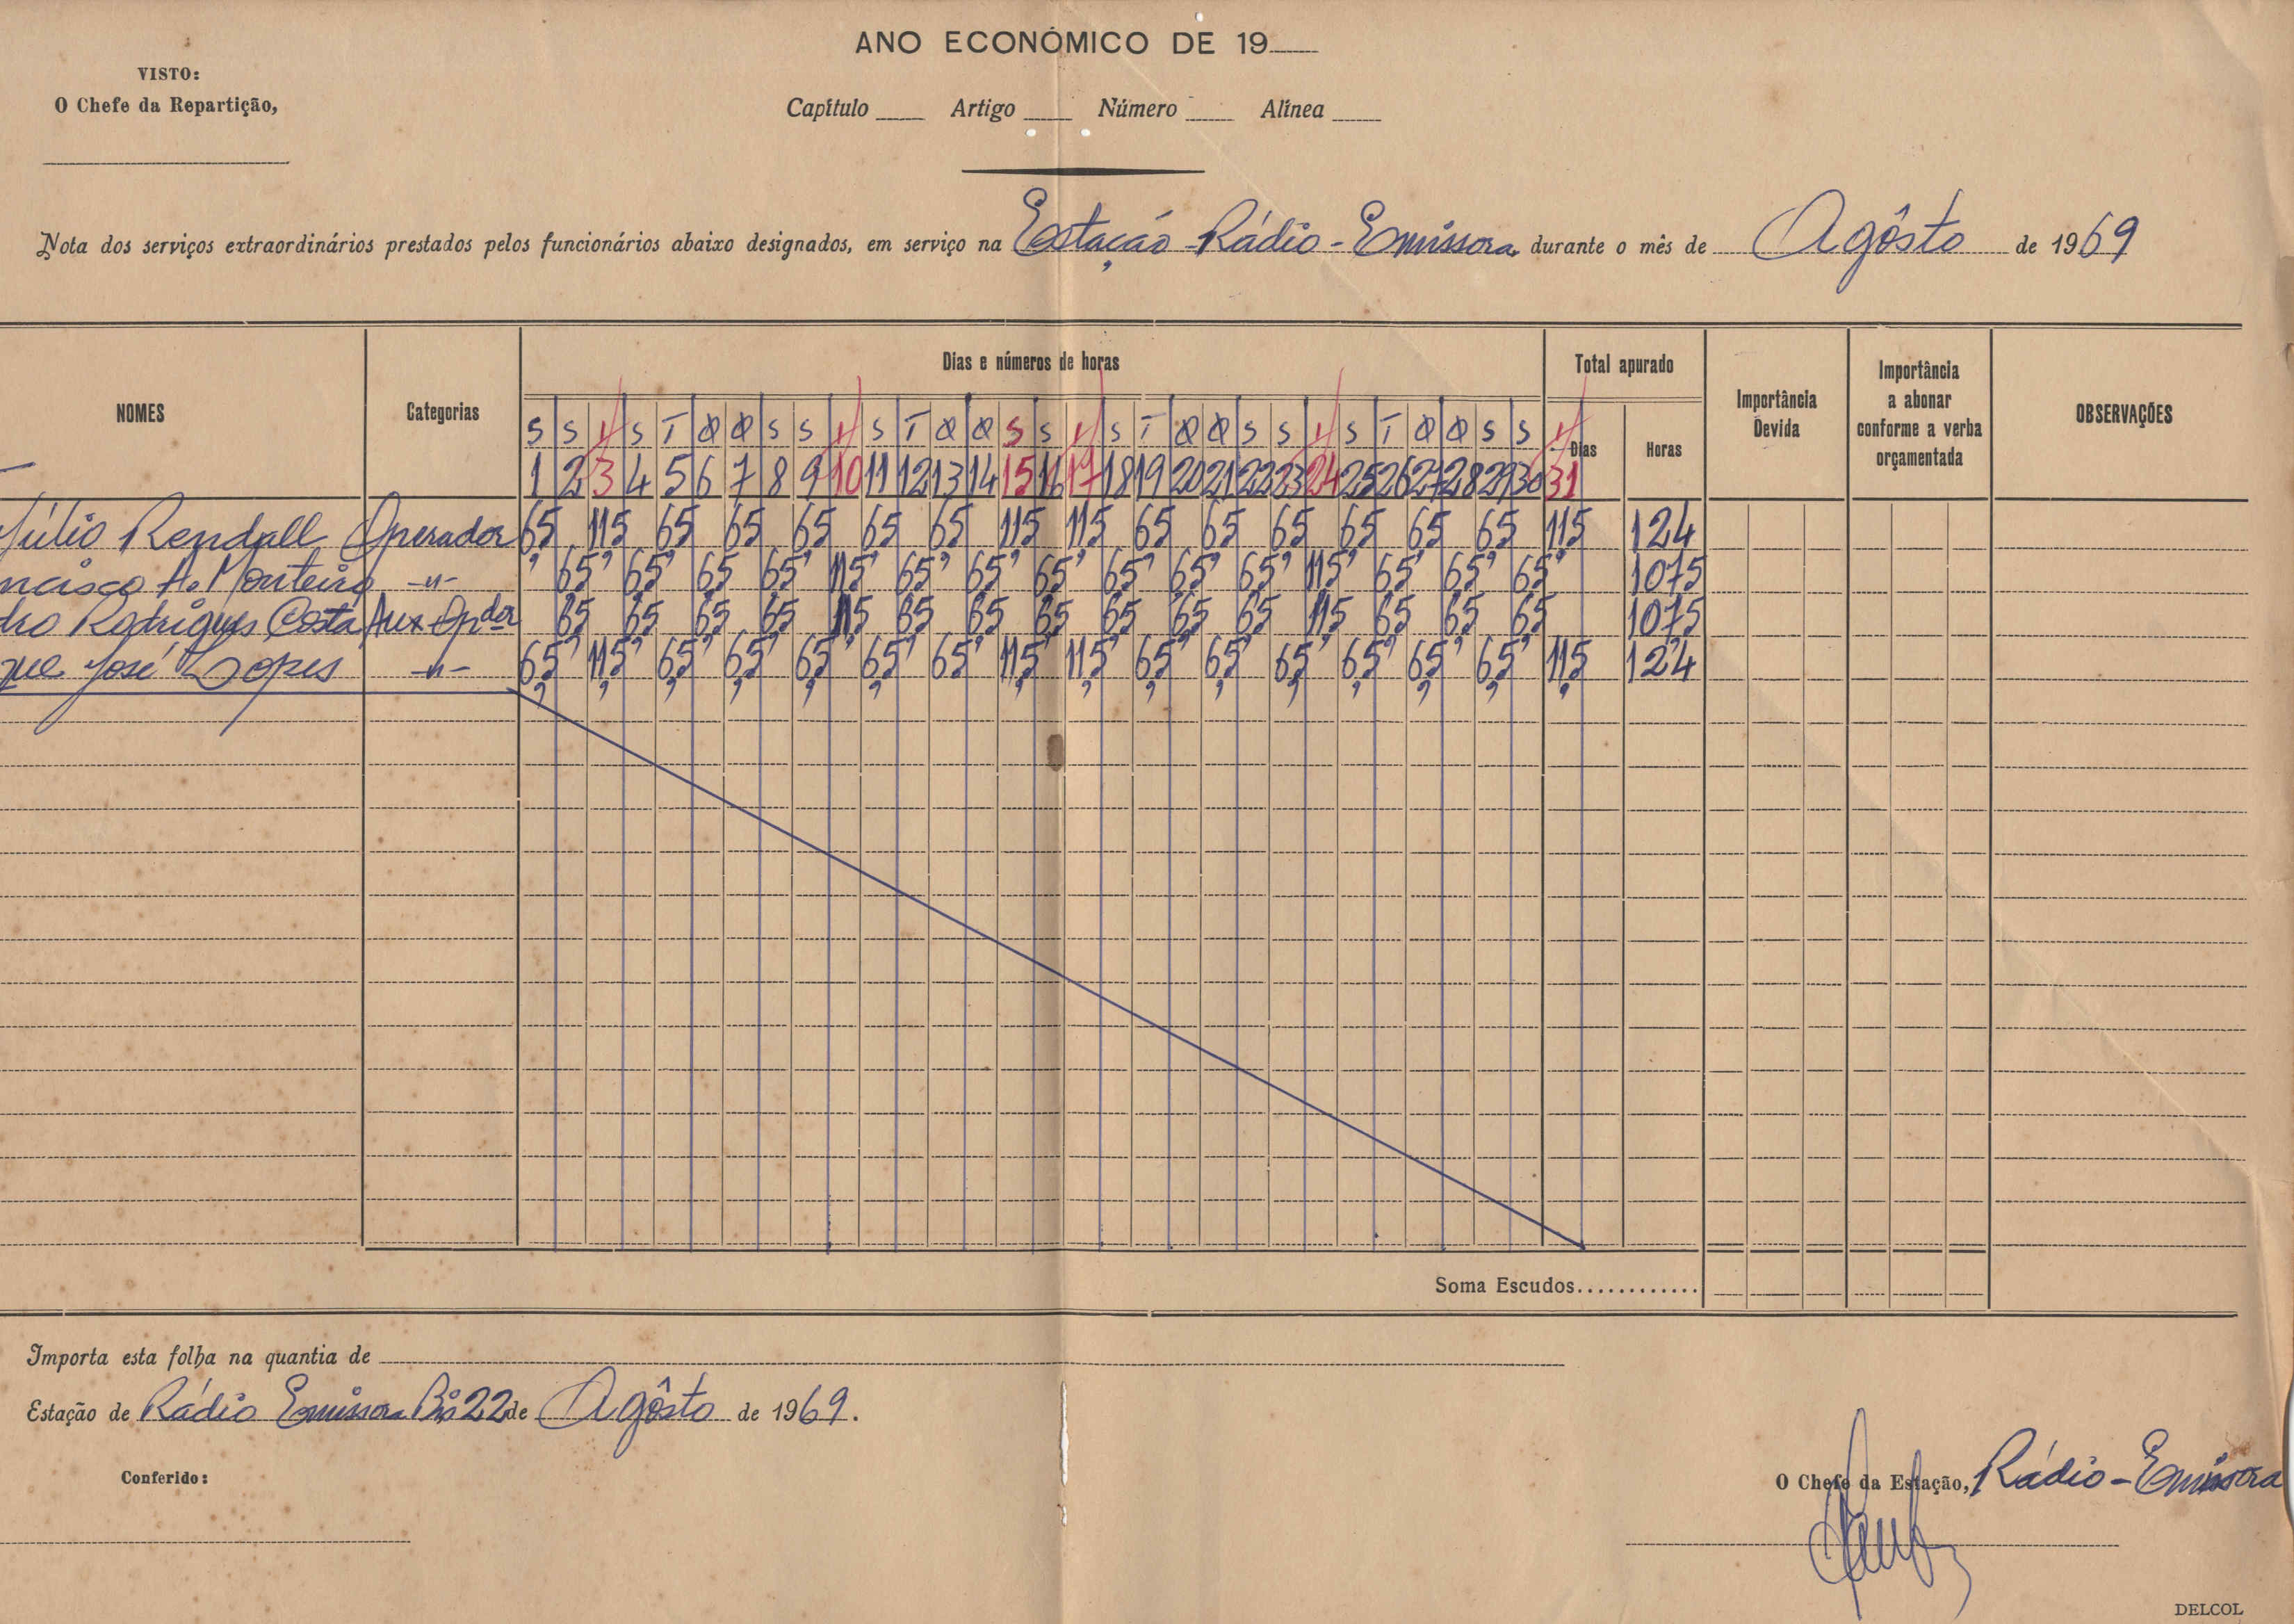 ANO ECONÓMICO DE 19
VISTO:
O Chefe da Repartição,
Capítulo Artigo Número Alínea
Nota dos serviços extraordinários prestados pelos funcionários abaixo designados, em serviço na Estação-Rádio-Emissora durante o mês de Agôsto de 1969
NOMES Categorias Dias e números de horas Total apurado Importância Devida Importância a abonar conforme a verba orçamentada OBSERVAÇÕES
Dias Horas
S S S T Q Q S S S T Q Q S S S T Q Q S S S T Q Q S S
1 2 3 4 5 6 7 8 9 10 11 12 13 14 15 16 17 18 19 20 21 22 23 24 25 26 27 28 29 30 31
Júlio Rendall Operador 65 115 65 65 65 65 65 115 115 65 65 65 65 65 65 115 124
ncisco A. Monteiro -"- 65 65 65 65 115 65 65 65 65 65 65 115 65 65 65 1075
dro Rodrigues Costa Aux Opdor 65 65 65 65 115 65 65 65 65 65 65 115 65 65 65 1075
que José Lopes -"- 65 115 65 65 65 65 65 115 115 65 65 65 65 65 65 115 124
Soma Escudos............
Importa esta folha na quantia de
Estação de Rádio Emissora 22 de Agôsto de 1969.
Conferido:
O Chefe da Estação, Rádio-Emissora
DELCOL